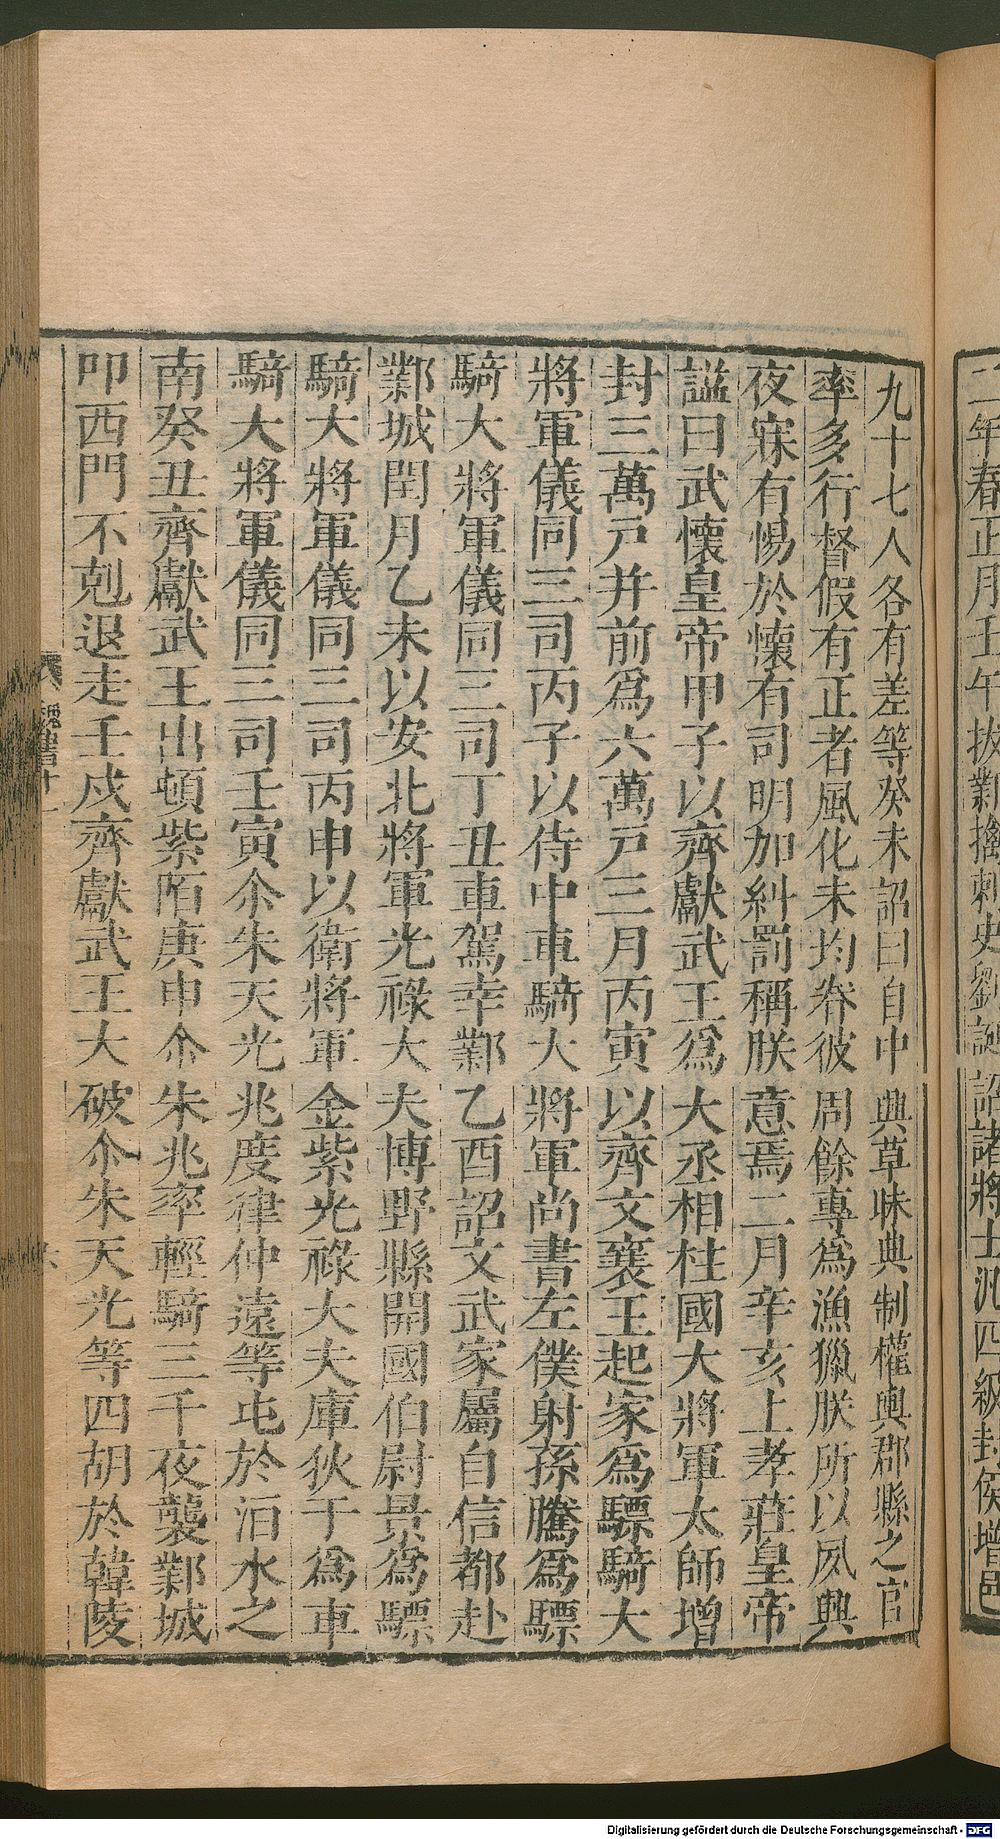 二年春正月壬午拔鄴擒刺史劉誕詔諸將士汎四級封侯增邑
九十七人各有差等癸未詔曰自中興草昧典制權輿郡縣之官
率多行督假有正者風化未均眷彼周餘專為漁獵朕所以夙興
夜寐有惕於懷有司明加糾罰稱朕意焉二月辛亥上孝莊皇帝
謚曰武懷皇帝甲子以齊獻武王為大丞相柱國大將軍太師增
封三萬戸并前為六萬戸三月丙寅以齊文襄王起家為驃騎大
將軍儀同三司丙子以侍中車騎大將軍尚書左僕射孫騰為驃
騎大將軍儀同三司丁丑車駕幸鄴乙酉詔文武家屬自信都赴
鄴城閏月乙未以安北將軍光祿大夫博野縣開國伯尉景為驃
騎大將軍儀同三司丙申以衛將軍金紫光祿大夫庫狄干為車
騎大將軍儀同三司壬寅尒朱天光兆度律仲遠等屯於洹水之
南癸丑齊獻武王出頓紫陌庚申尒朱兆率輕騎三千夜襲鄴城
叩西門不剋退走壬戍齊獻武王大破尒朱天光等四胡於韓陵
魏書十一
六
Digitalisierung gefördert durch die Deutsche Forschungsgemeinschaft - DFG